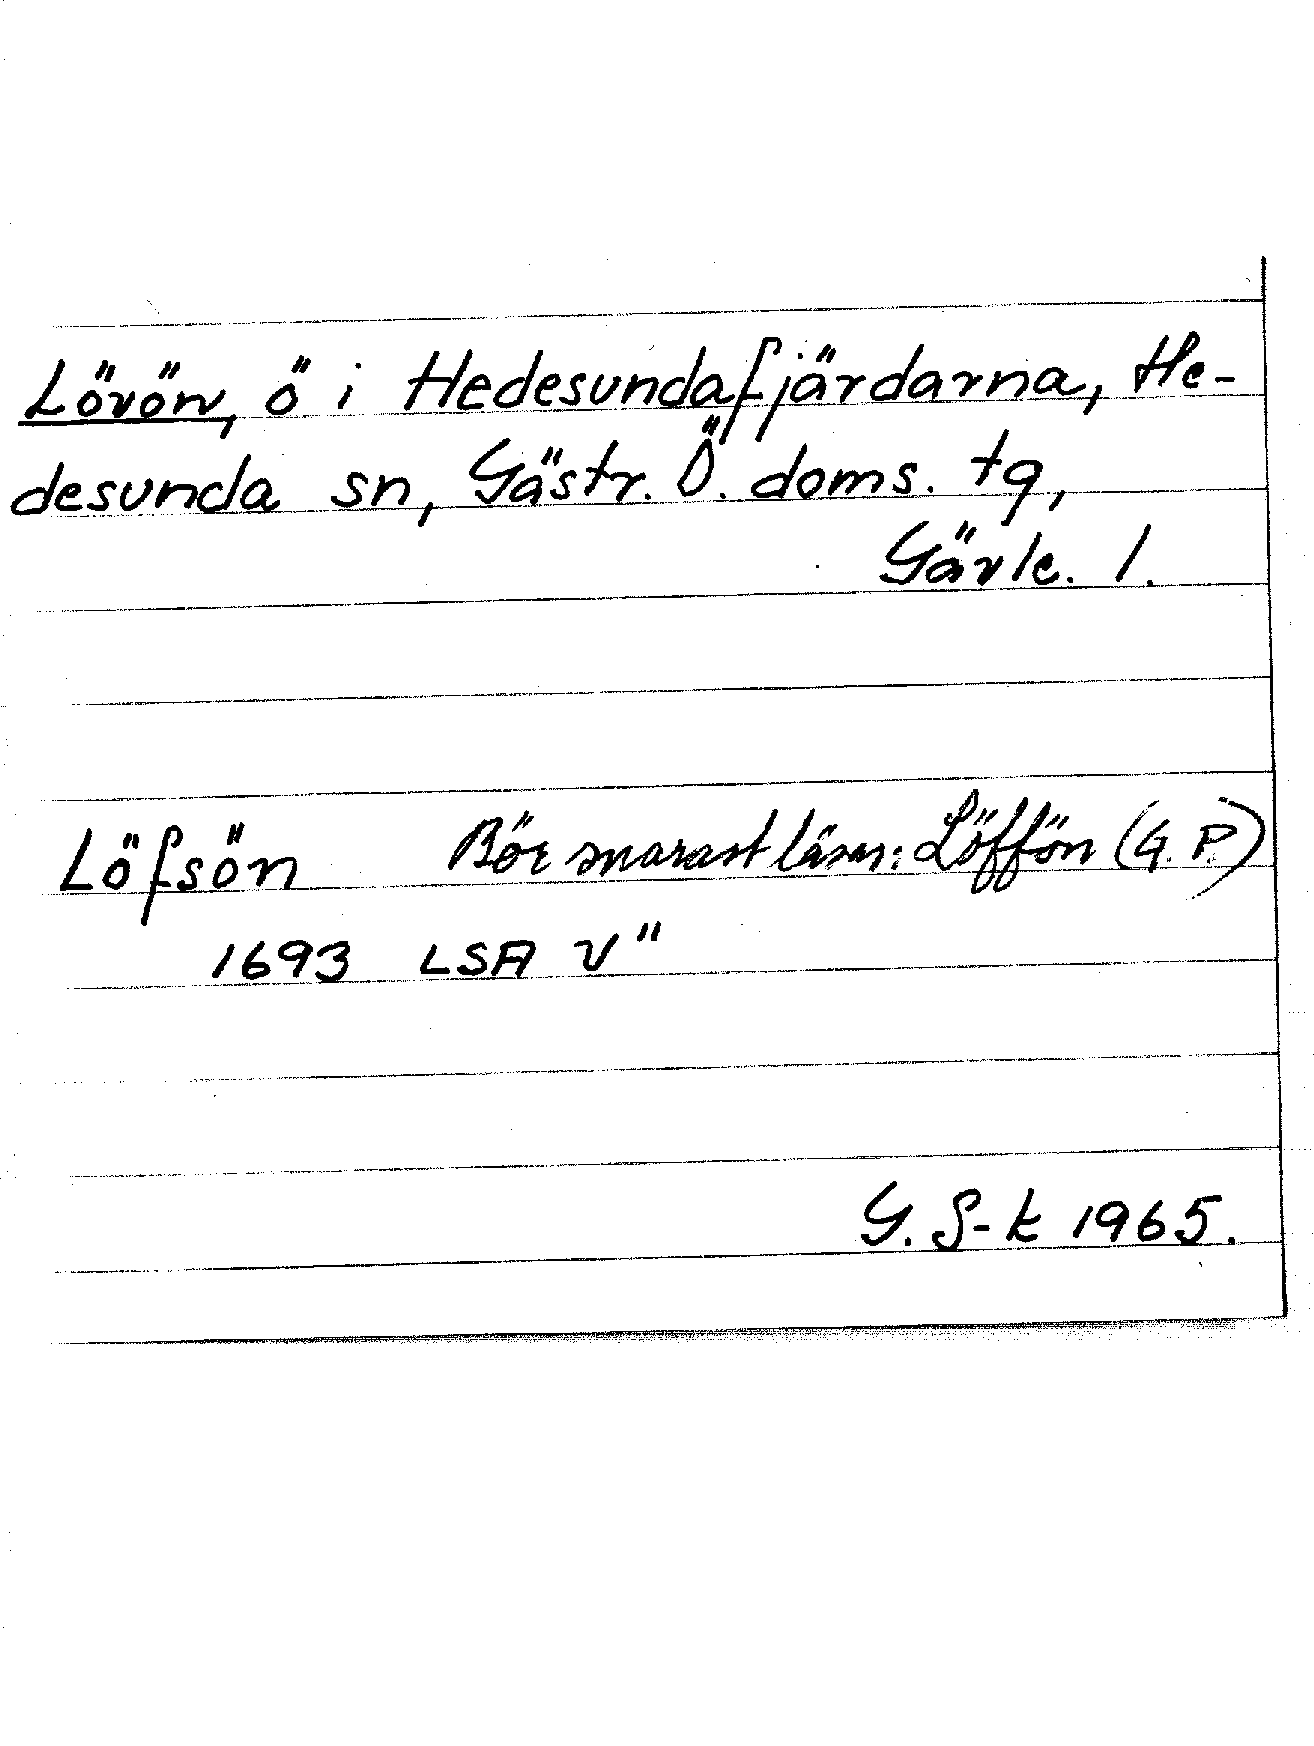 Lövön, ö i Hedesundafjärdarna, He-
desunda sn, Gästr. Ö. doms. tg,
Gävle. l.
Löfsön Bör snarast läsas: Löffön (G. P.)
1693 LSA V"
G. S-k 1965.